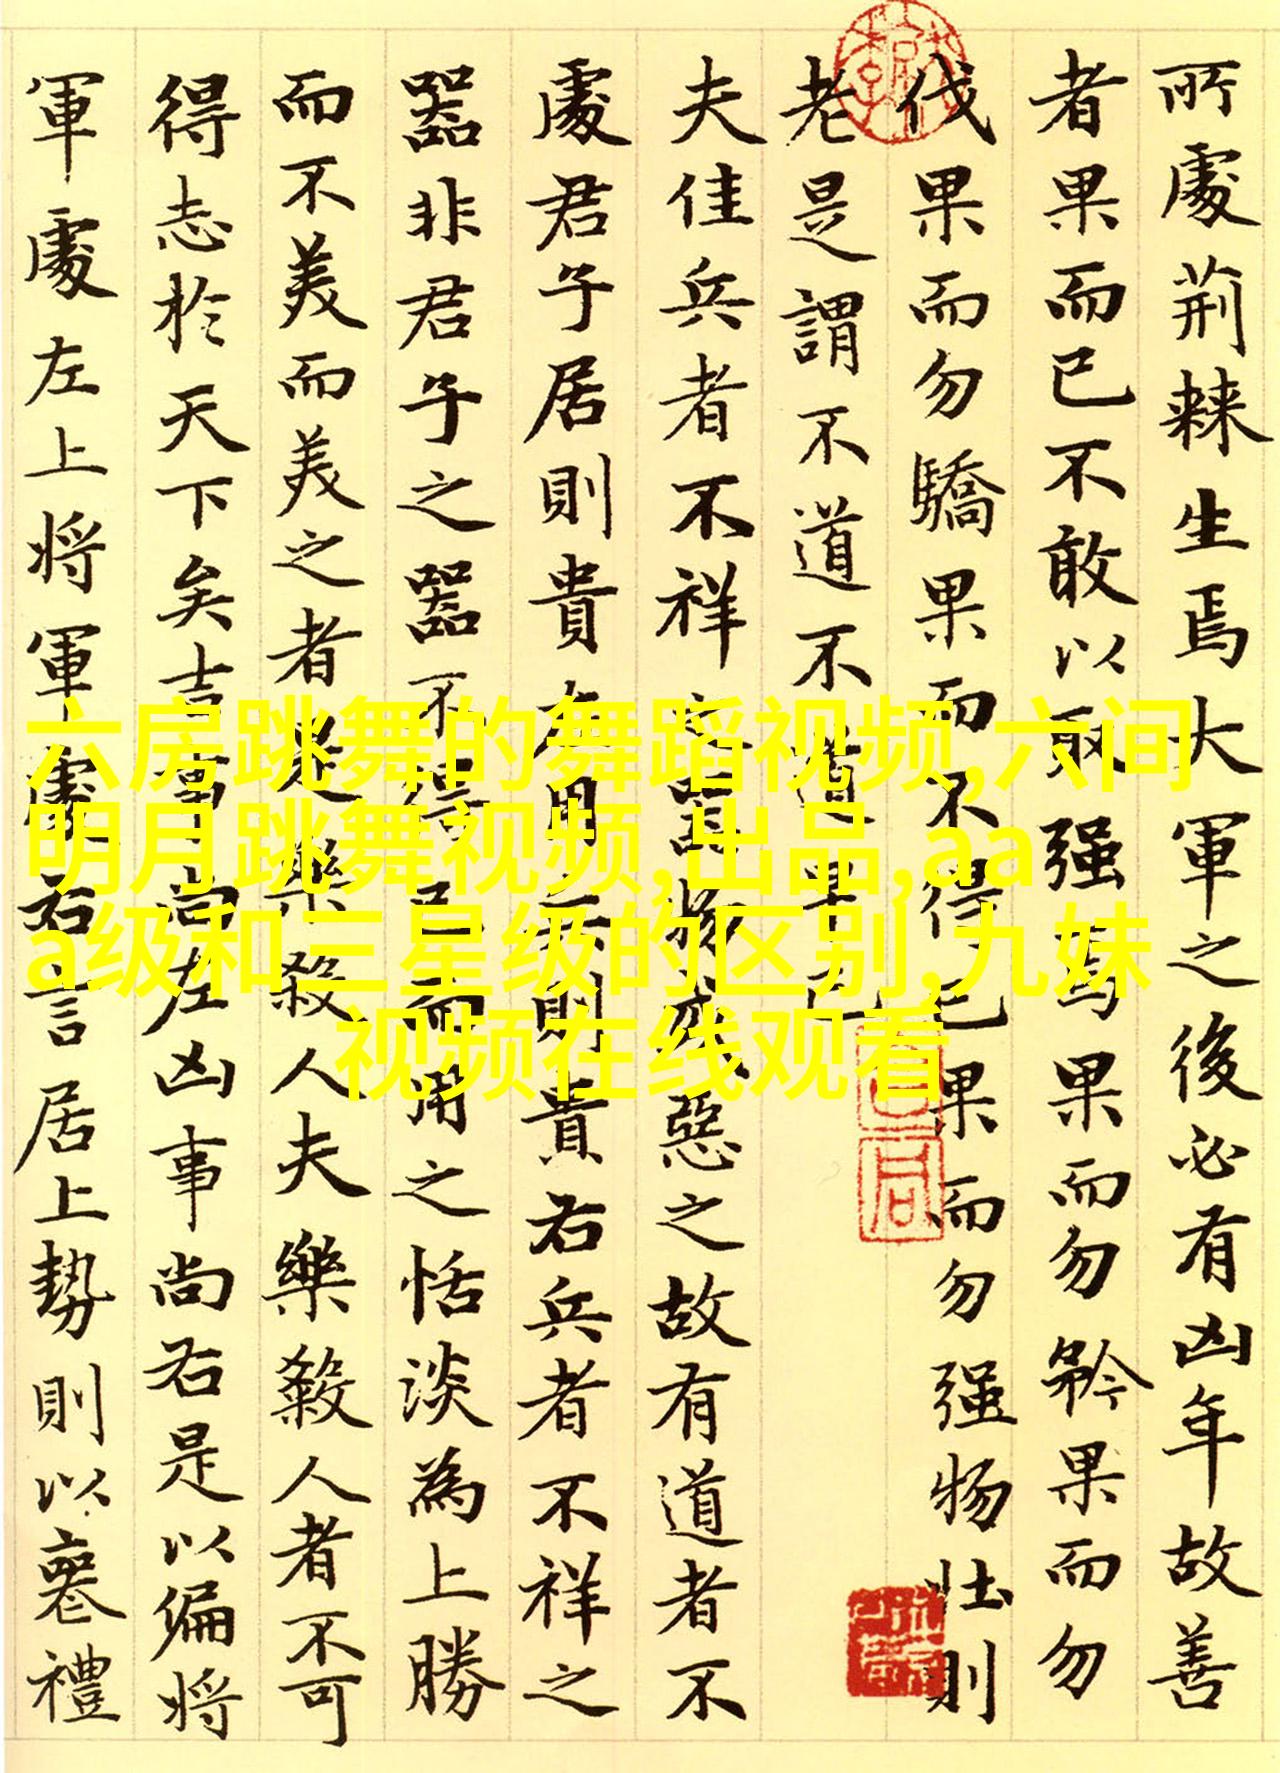 所處荊棘生焉大軍之後必有凶年故善
者果而已不敢以取强焉果而勿矜果而勿
伐果而勿驕果而不得已果而勿强物壮則
老是謂不道不道早已
夫佳兵者不祥之器物或惡之故有道者不
處君子居則貴左用兵則貴右兵者不祥之
器非君子之器不得已而用之恬淡為上勝
而不美而美之者是樂殺人夫樂殺人者不可
得志於天下矣吉事尚左凶事尚右是以偏將
軍處左上將軍處右言居上勢則以喪禮
六房跳舞的舞蹈视频,六间
明月跳舞视频,出品,aa
a级和三星级的区别,九妹
视频在线观看